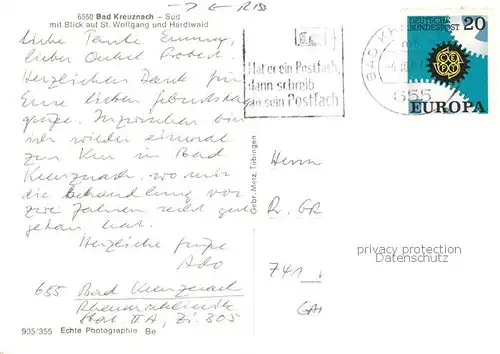 → ← RIS
6550 Bad Kreuznach – Süd
mit Blick auf St. Wolfgang und Hardtwald
Liebe Tante Emmy,
lieber Onkel Robert.
Herzlichen Dank für
Eure lieben Geburtstags
grüße. Inzwischen bin
ich wieder einmal
zur Kur in Bad
Kreuznach, wo mir
die Behandlung vor
zwei Jahren recht gut
getan hat.
Herzliche Grüße
Ado
655 Bad Kreuznach
Rheumaklinik
Stat. II A, Zi. 305
905/355 Echte Photographie Be
Gebr. Metz, Tübingen
Hat er ein Postfach,
dann schreib
an sein Postfach
BAD K
655
DEUTSCHE
BUNDESPOST
20
CEPT
EUROPA
Herrn
R. GR
741
GA
privacy protection
Datenschutz